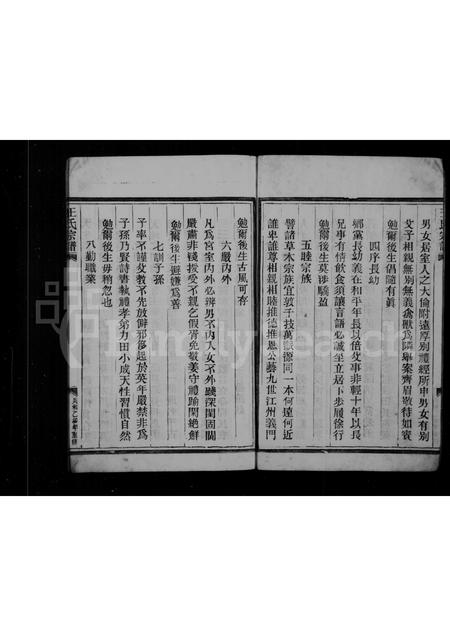 男女居室人之大倫附遠厚別禮經所申男女有別
父子相親無別無義禽獸為鄰舉案齊眉敬待如賓
勉爾後生倡隨有眞
四序長幼
鄉黨長幼義在和平年長以倍父事非輕十年以長
兄事有情飲食須讓言語必誠至立居下步履徐行
勉爾後生莫涉驕盈
五睦宗族
譬諸草木宗族宜敦千枝萬源同一本何遠何近
誰卑誰尊相親相睦推德推恩公藝九世江州義門
勉爾後生古風可存
六嚴內外
凡為宮室內外必辨男不內入女不外踐深閨固關
嚴肅非親授受不親乞假胥免敬姜守禮踰閾絕鮮
勉爾後生避嫌為善
七訓子孫
子率不謹父教不先放僻邪侈起於英年嚴禁非為
子孫乃賢詩書執禮孝弟力田小成天性習慣自然
勉爾後生毋稍忽也
八勤職業
王氏宗譜